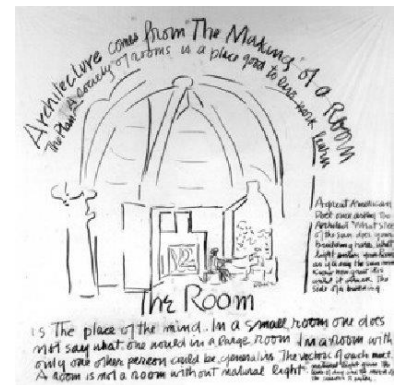 Architecture comes from The Making of a Room
The Plan A society of rooms is a place good to live work learn
A great American
Poet once asked the
Architect 'What slice
of the sun does your
building have, what
light enters your room
The Room
is The place of the mind. In a small room one does
not say what one would in a large room In a room with
only one other person could be generative. The vectors of each meet.
A room is not a room without natural light.